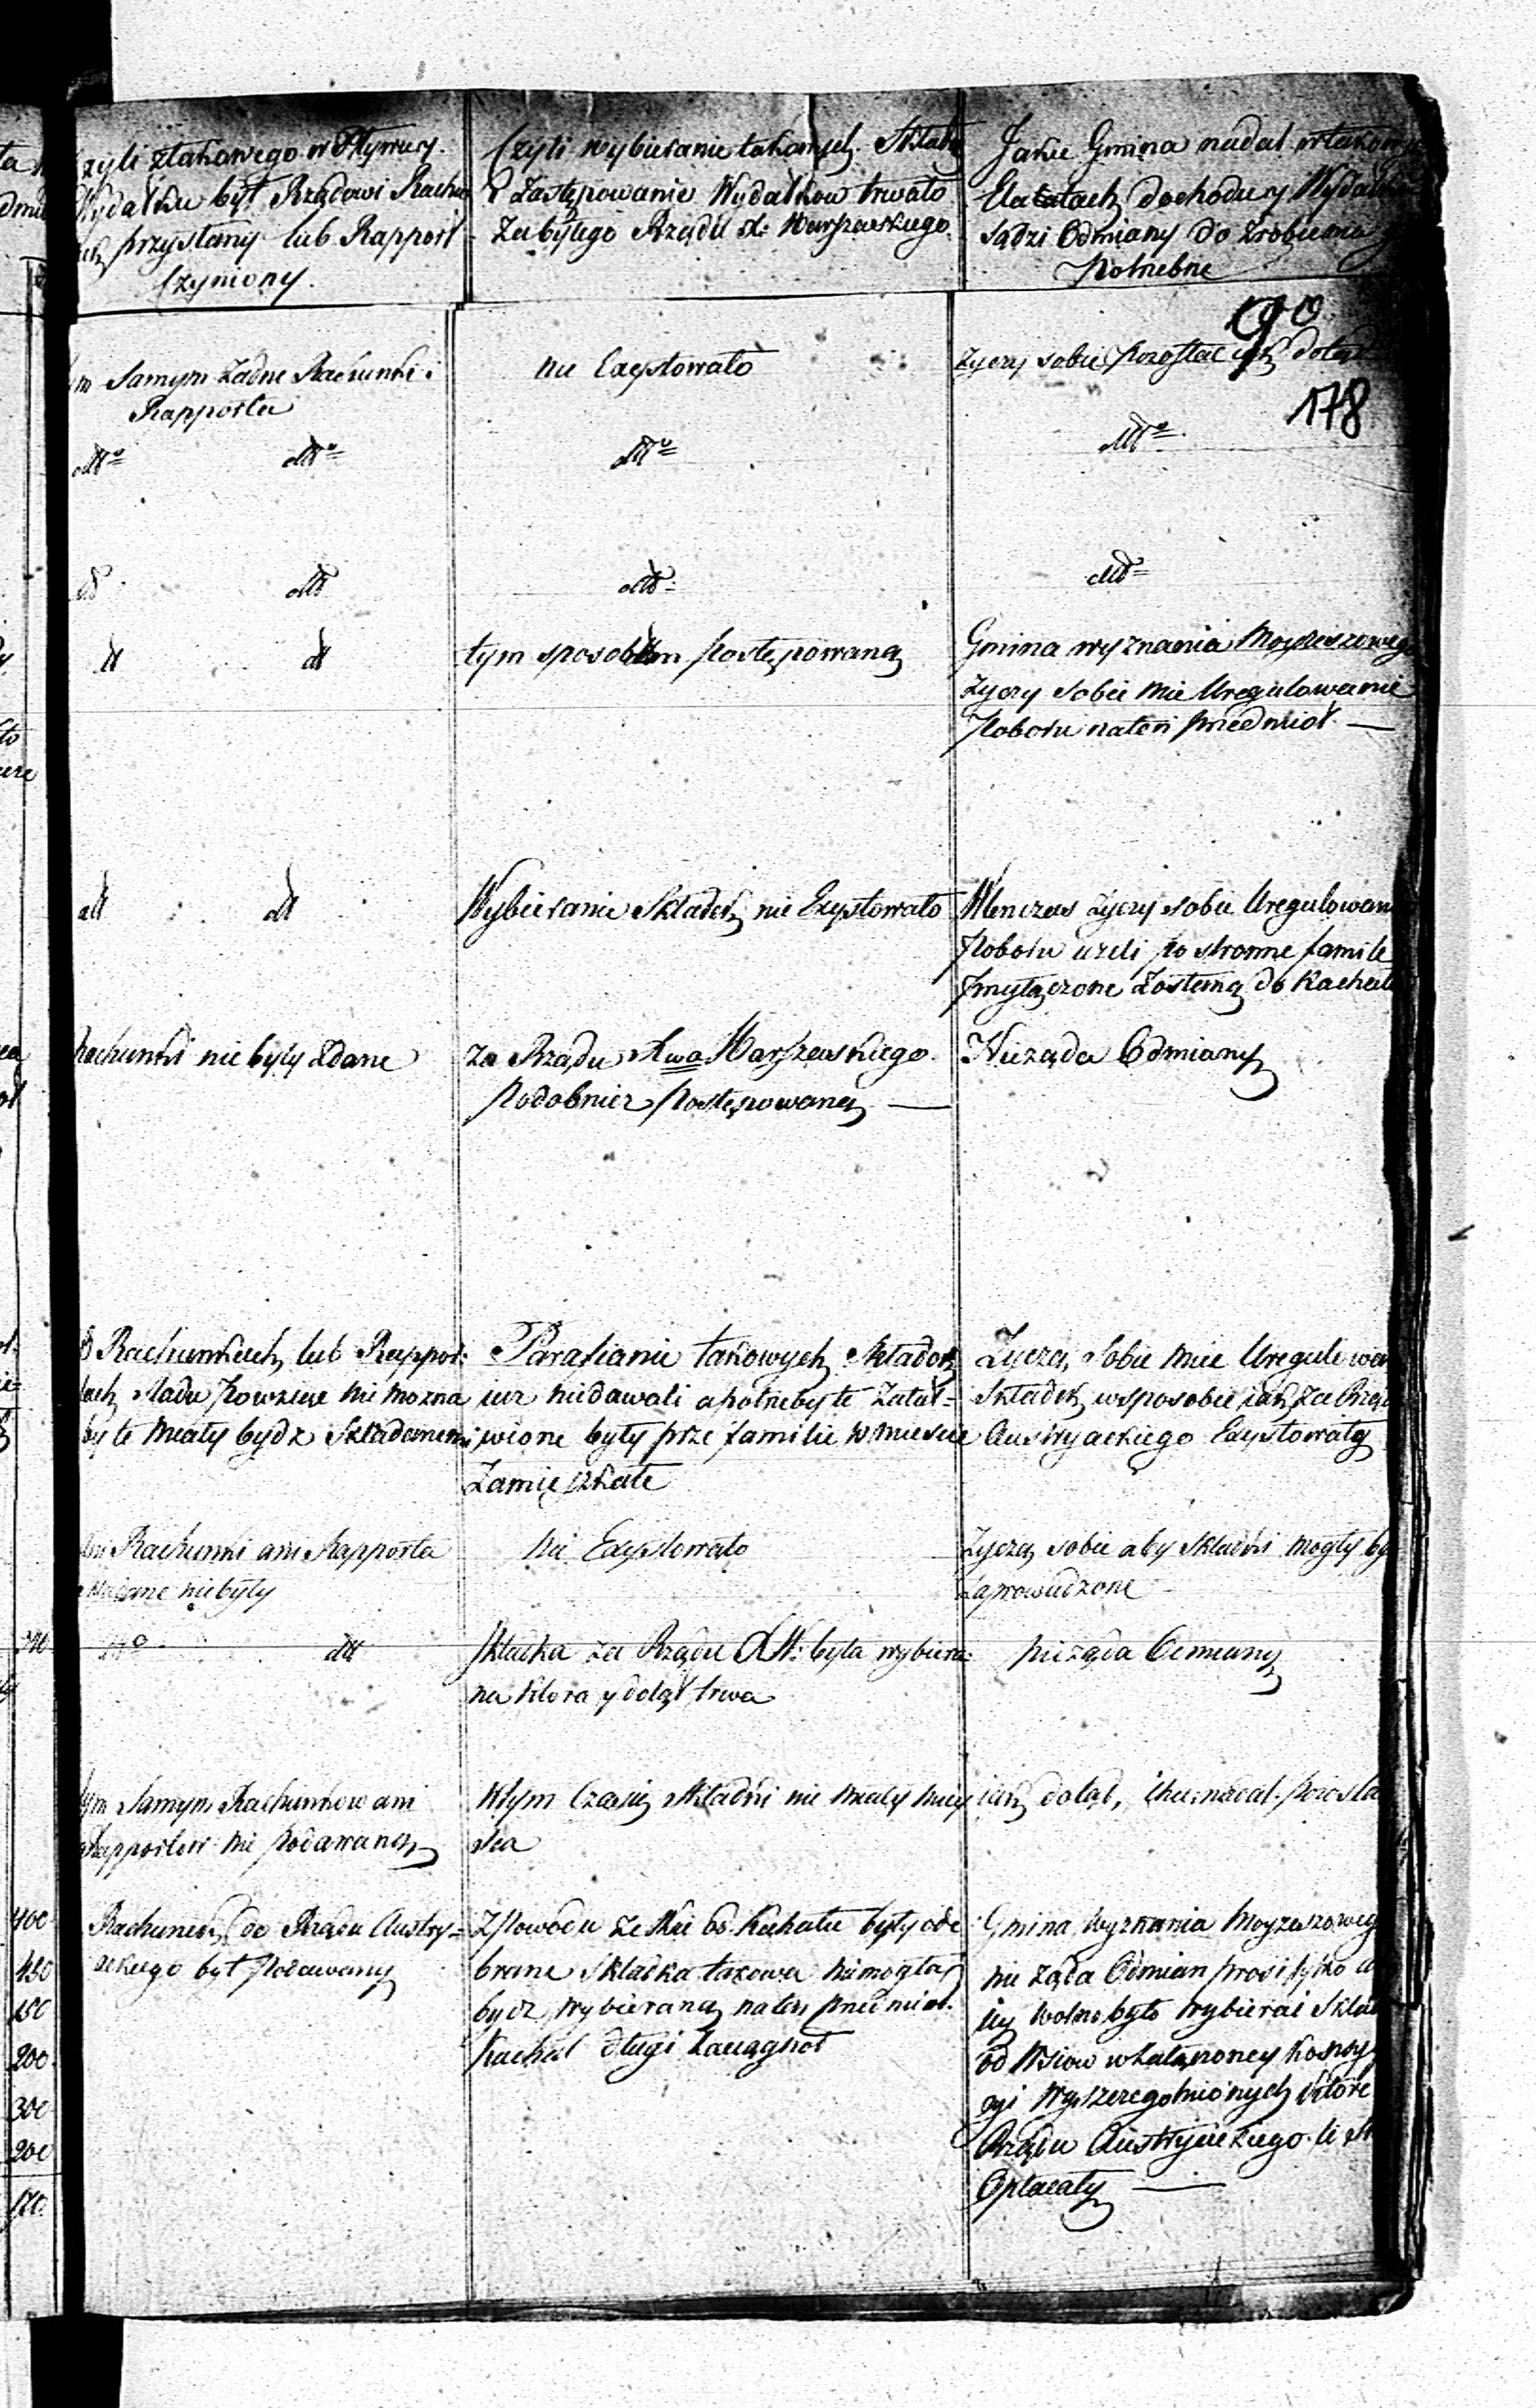 Czyli ztakowego w Pływu y.
Wydatku był Rządowi Rachu
przysłany lub Rapport
Czyniony.
Czyli wybieranie takowych Skład
Zastępowanie Wydatkow trwało
Za byłego Rządu X: Warszawskiego.
Jakie Gmina nadal w takow
Etatach dochodu y Wydatk
sądzi Odmiany do Zrobienia
Potrzebne
90
178
Samym Żadne Rachunki i
Rapporta
nie Exystowało
Zyczy sobie pozostać jak dotąd
dtto dtto
dtto
dtto
dtto
dtto
dtto
dt dt
tym sposobem postępowaną
Gmina wyznania Moyżeszoweg
Zyczy sobie mie Uregulowanie
Poboru na ten przedmiot —
dt dt
Wybieranie Składek nie Exystowało
Wenczas Zyczy sobie Uregulowan
Poboru ieżeli po stronne familie
Przyłączone Zostaną do Kachał
Rachunki nie były Zdane
Za Rządu Xwa Warszawskiego
Podobnież postępowaną —
Nieżąda Odmiany
Rachunkach lub Rappor:
tach śladu powziąść nie można
by te miały bydź Składanemi
Parafianie takowych Składek
iuż niedawali a potrzeby te Załat=
wione były prze familie w mieście
Zamięszkałe
Zyczą Sobie mieć Uregulowa
Składek w sposobie iak za Rządu
Austryackiego Exystowały
Rachunki ani Rapporta
niebyły
nie Exystowało
Zyczą sobie aby składki mogły by
Zaprowadzone
dtt
składka za Rządu XW: była wybiera:
na ktora y dotąt trwa
nieżąda Odmiany
tym Samym Rachunkow ani
Rapportow nie podawaną
W tym Czasie Składki nie miały miey
sca
iak dotąd, chce nadal pozosta
Rachunek do Rządu Austry=
ackiego był podawany
Z powodu że Wsie od Kachału były ode
brane Składka takowa niemogła
bydź wybieraną na ten przedmiot.
Kachał długi zaciągnoł
Gmina Wyznania Moyżeszoweg
nie żąda Odmian prosi tylko a
iey wolno było wybierać Skład
od Wsiow w
Wyszczegolnionych ktore
Rządu Austryackiego
Opłacały —
400
450
150
200
300
200